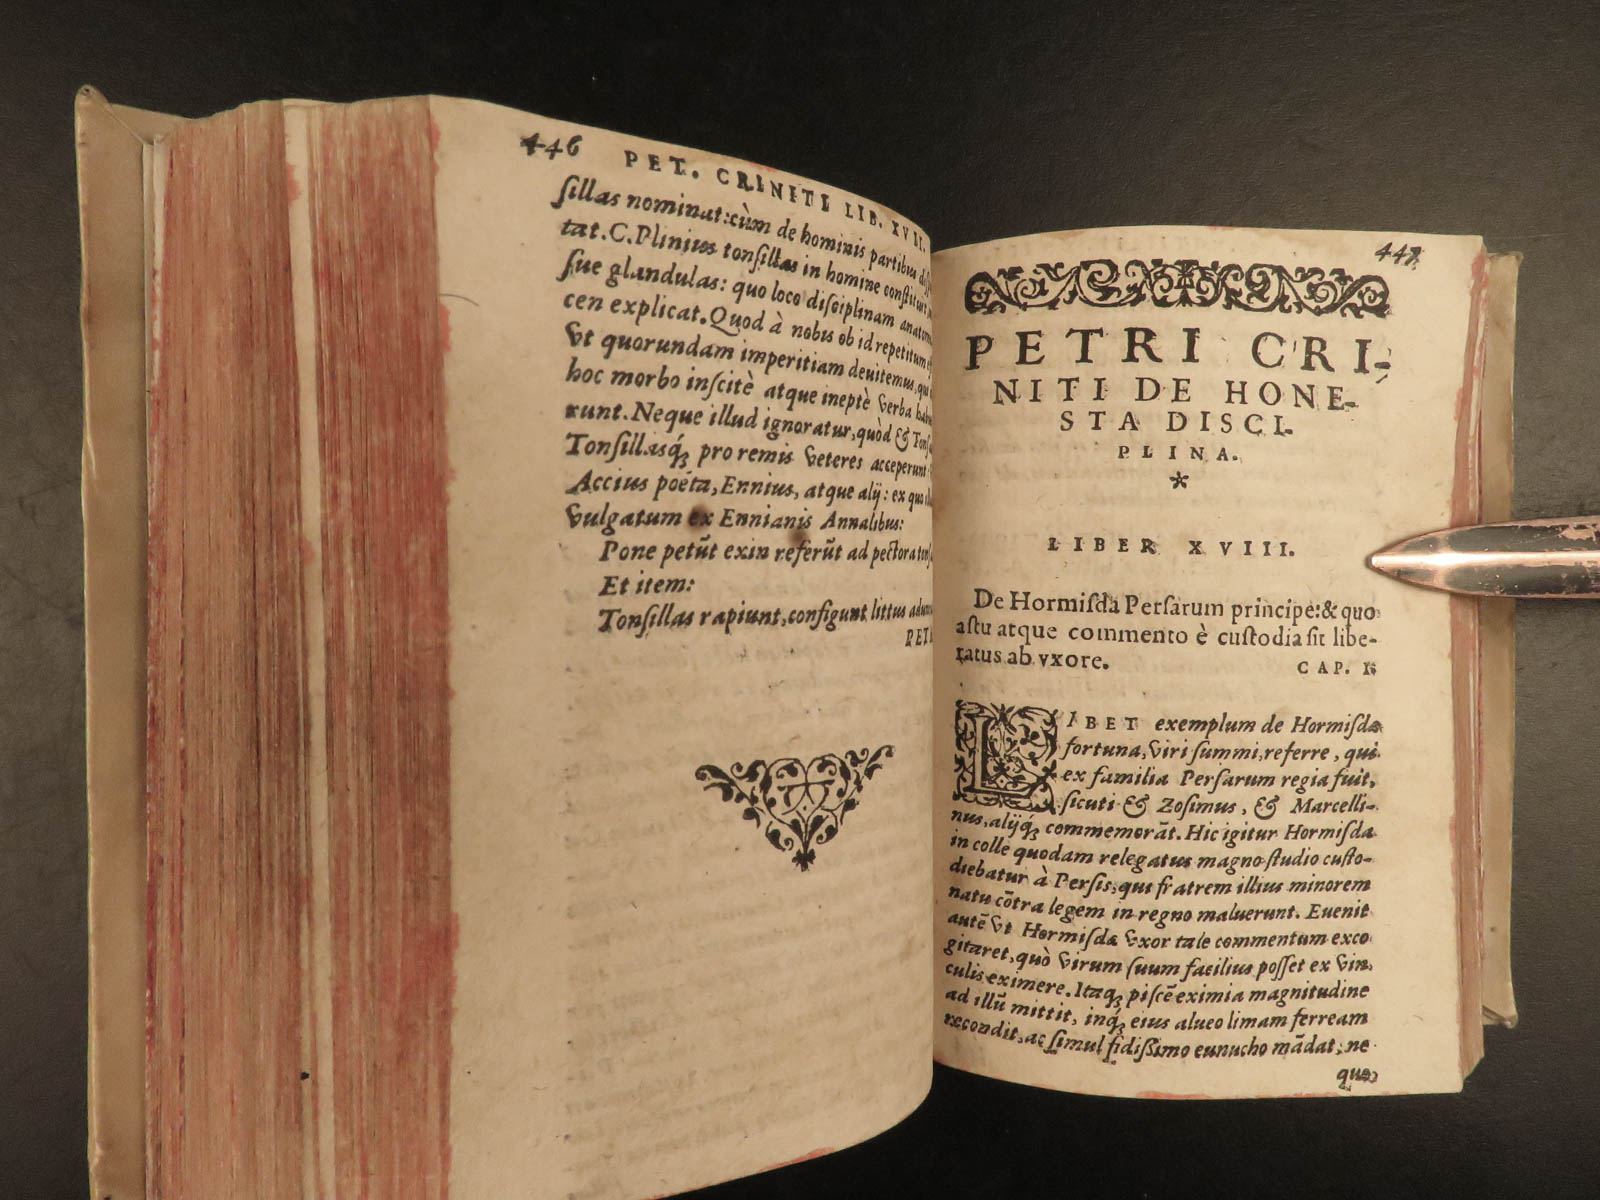 446 PET. CRINITI LIB. XVII.
ſillas nominat: cùm de hominis partibus
tat. C. Plinius tonſillas in homine conſtituit
ſue glandulas: quo loco diſciplinam
cen explicat. Quod à nobis ob id repetitum
vt quorundam imperitiam deuitemus, qui
hoc morbo inſcitè atque ineptè verba
runt. Neque illud ignoratur, quòd &
Tonſillasq́; pro remis veteres acceperunt
Accius poëta, Ennius, atque alij: ex quo
vulgatum ex Ennianis Annalibus:
Pone petūt exin referūt ad pectora
Et item:
Tonſillas rapiunt, configunt littus
447
PETRI CRI-
NITI DE HONE-
STA DISCI-
PLINA.
*
LIBER XVIII.
De Hormiſda Perſarum principe: & quo
aſtu atque commento è cuſtodia ſit libe-
ratus ab vxore. CAP. I.
LIBET exemplum de Hormiſdæ
fortuna, viri ſummi, referre, qui
ex familia Perſarum regia fuit,
ſicuti & Zoſimus, & Marcelli-
nus, alijq́; commemorāt. Hic igitur Hormiſda
in colle quodam relegatus magno ſtudio cuſto-
diebatur à Perſis, qui fratrem illius minorem
natu cōtra legem in regno maluerunt. Euenit
autē vt Hormiſdæ vxor tale commentum exco
gitaret, quò virum ſuum facilius poſſet ex vin,
culis eximere. Itaq; piſcē eximia magnitudine
ad illū mittit, inq́; eius alueo limam ferream
recondit, ac ſimul fidiſſimo eunucho mādat, ne
que